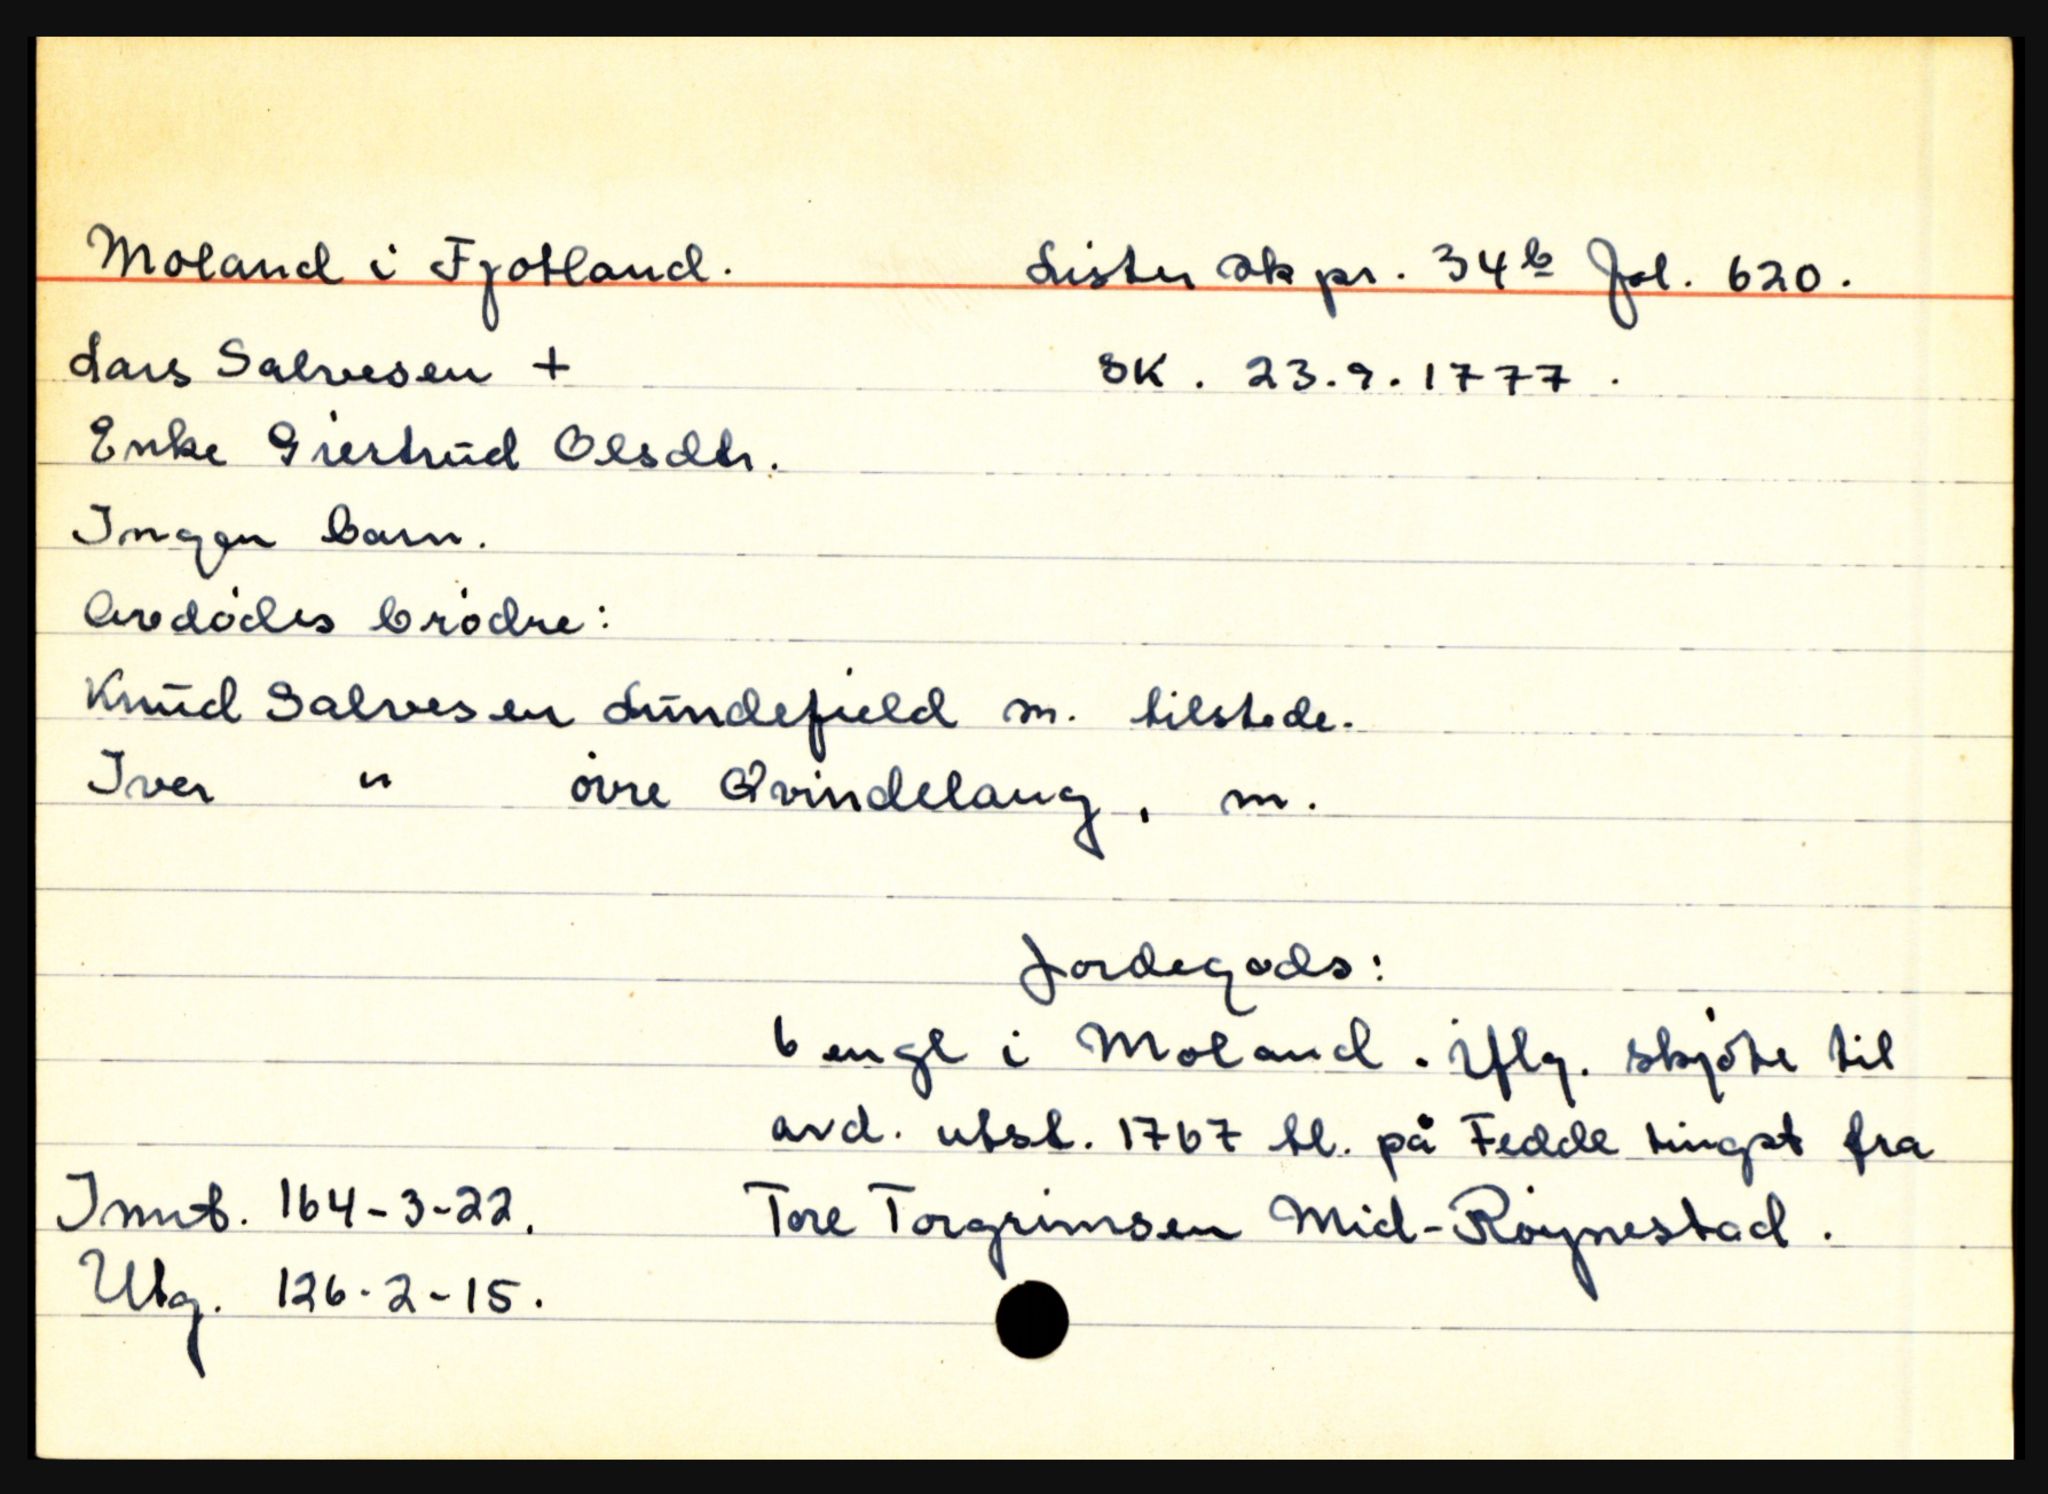 Moland i Fjotland. Lister sk pr. 34b fol. 620.
Lars Salvesen + SK. 23.9.1777.
Enke Giertrud Olsdtr.
Ingen barn.
Avdødes brødre:
Knud Salvesen Lundefield m. tilstede.
Iver " øvre Qvindelaug, m.
Jordegods:
6 engl i Moland. Iflg. skjøte til
avd. utst. 1767 tl. på Fedde tingst fra
Innt. 164-3-22. Tore Torgrimsen Mid-Røynestad.
Utg. 126-2-15.